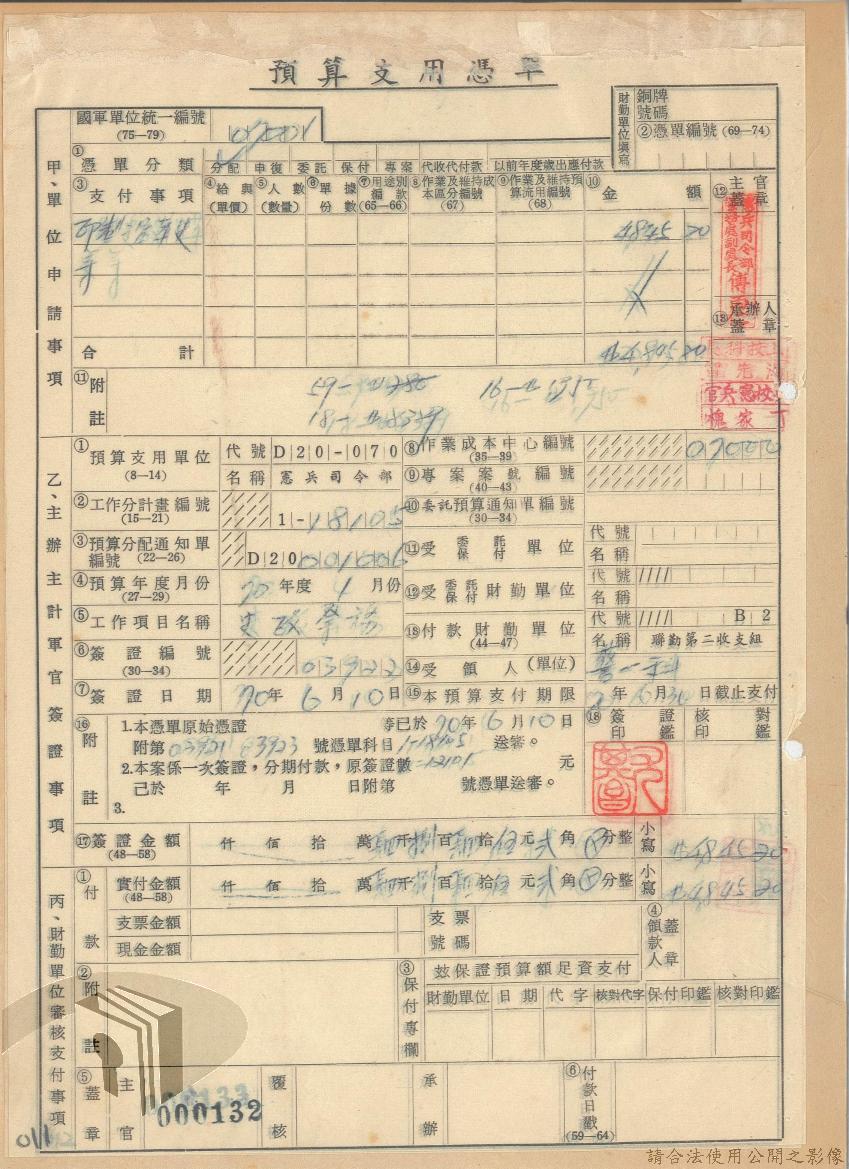 預算支用憑單
國軍單位統一編號
(75—79)
財勤單位填寫
銅牌號碼
②憑單編號 (69—74)
甲、單位申請事項
①憑單分類 分配 申復 委託 保付 專案 代收代付款 以前年度歲出應付款
③支付事項 ④給與(單價) ⑤人數(數量) ⑥單據份數 ⑦用途別編款(65—66) ⑧作業及維持成本區分編號(67) ⑨作業及維持預算流用編號(68) ⑩金額 ⑫主官蓋章
4845 20
⑬承辦人蓋章
合計
4845 20
⑪附註
乙、主辦主計軍官簽證事項
①預算支用單位
(8—14)
代號 D20-070
名稱 憲兵司令部
②工作分計畫編號
(15—21)
1-18105
③預算分配通知單編號 (22—26)
D20 001006
④預算年度月份
(27—29)
70年度4月份
⑤工作項目名稱
⑥簽證編號
(30—34)
03922
⑦簽證日期 70年6月10日
⑧作業成本中心編號
(35—39)
⑨專案案號編號
(40—43)
⑩委託預算通知單編號
(30—34)
⑪受委託保付單位
代號
名稱
⑫受委託保付財勤單位
代號
名稱
⑬付款財勤單位
(44—47)
代號 B2
名稱 聯勤第二收支組
⑭受領人(單位)
⑮本預算支付期限 年6月30日截止支付
⑯附註
1.本憑單原始憑證 等已於70年6月10日
附第 號憑單科目 送審。
2.本案係一次簽證,分期付款,原簽證數 元
己於 年 月 日附第 號憑單送審。
3.
⑱簽證印鑑
核對印鑑
⑰簽證金額
(48—58)
仟佰拾萬肆仟捌百肆拾伍元貳角 分整
小寫 4845 20
丙、財勤單位審核支付事項
①付款
實付金額
(48—58)
仟佰拾萬肆仟捌百肆拾伍元貳角 分整
小寫 4845 20
支票金額
現金金額
支票號碼
④領款人蓋章
②附註
③保付專欄
玆保證預算額足資支付
財勤單位 日期 代字 核對代字 保付印鑑 核對印鑑
⑤蓋章
主官
覆核
承辦
⑥付款日戳
(59—64)
000132
011
請合法使用公開之影像